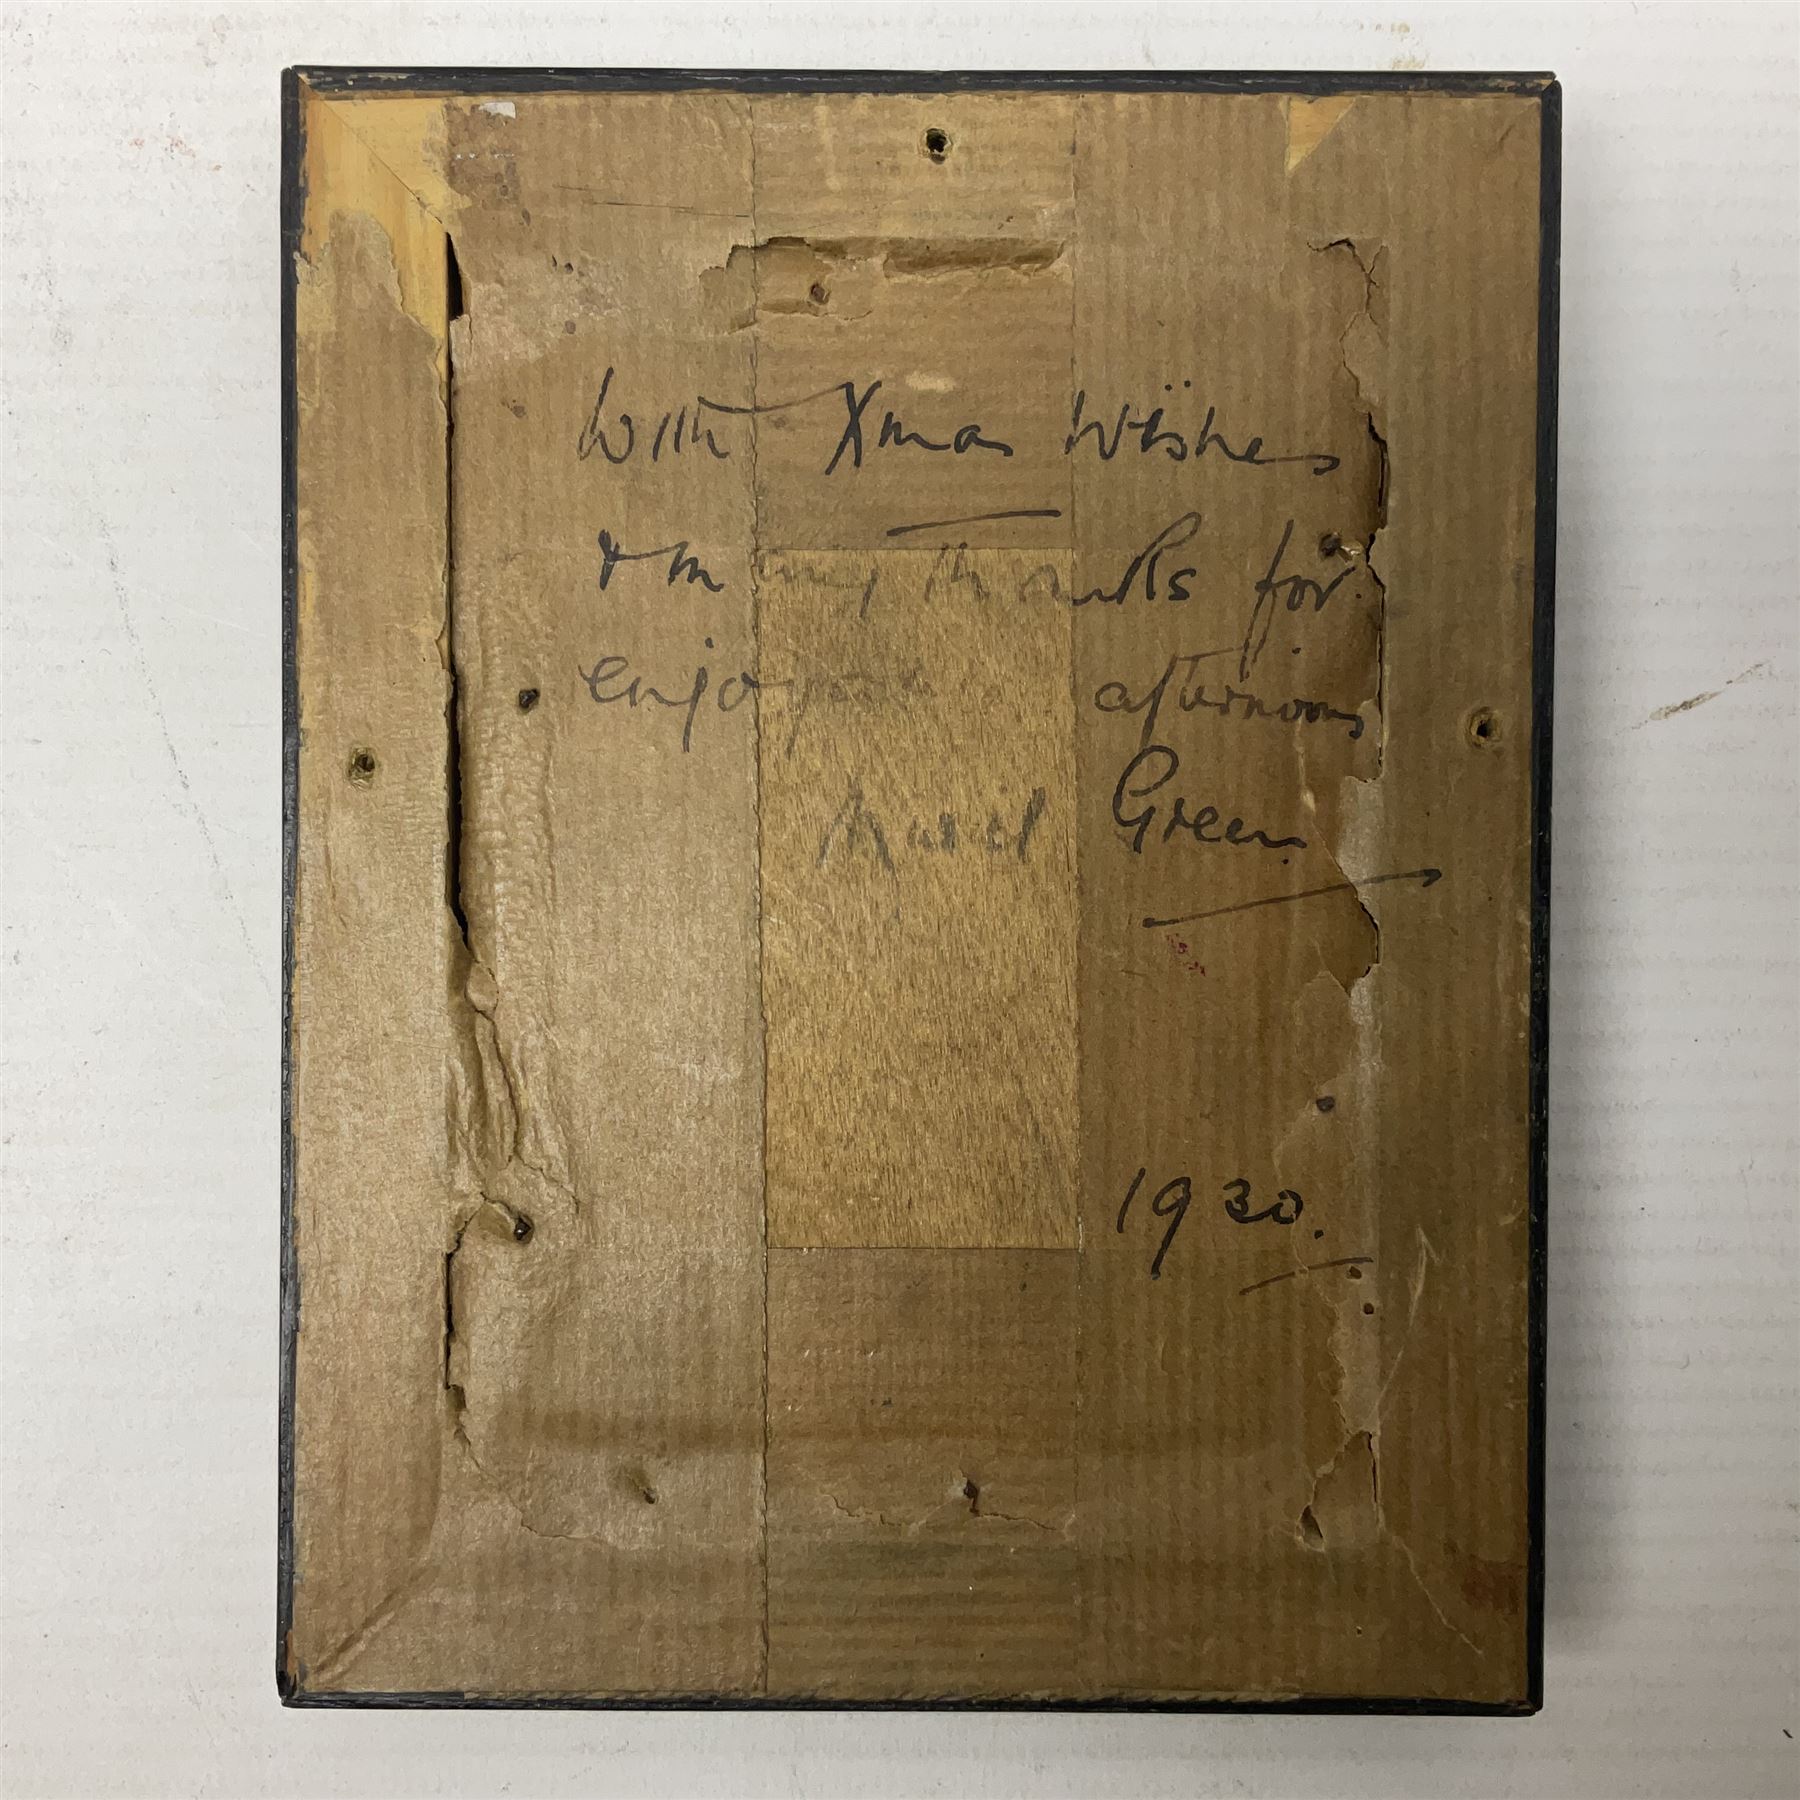 With Xmas Wishes
& many thanks for
enjoyable afternoons
Green
1930.